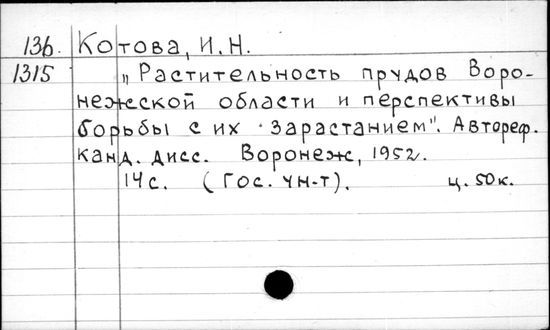 136. Котова, И.Н.
1315 „Растительность прудов Воро-
нежской области и перспективы
борьбы с их зарастанием". Автореф.
канд. дисс. Воронеж, 1952.
14с. (Гос. ун-т). ц. 50к.